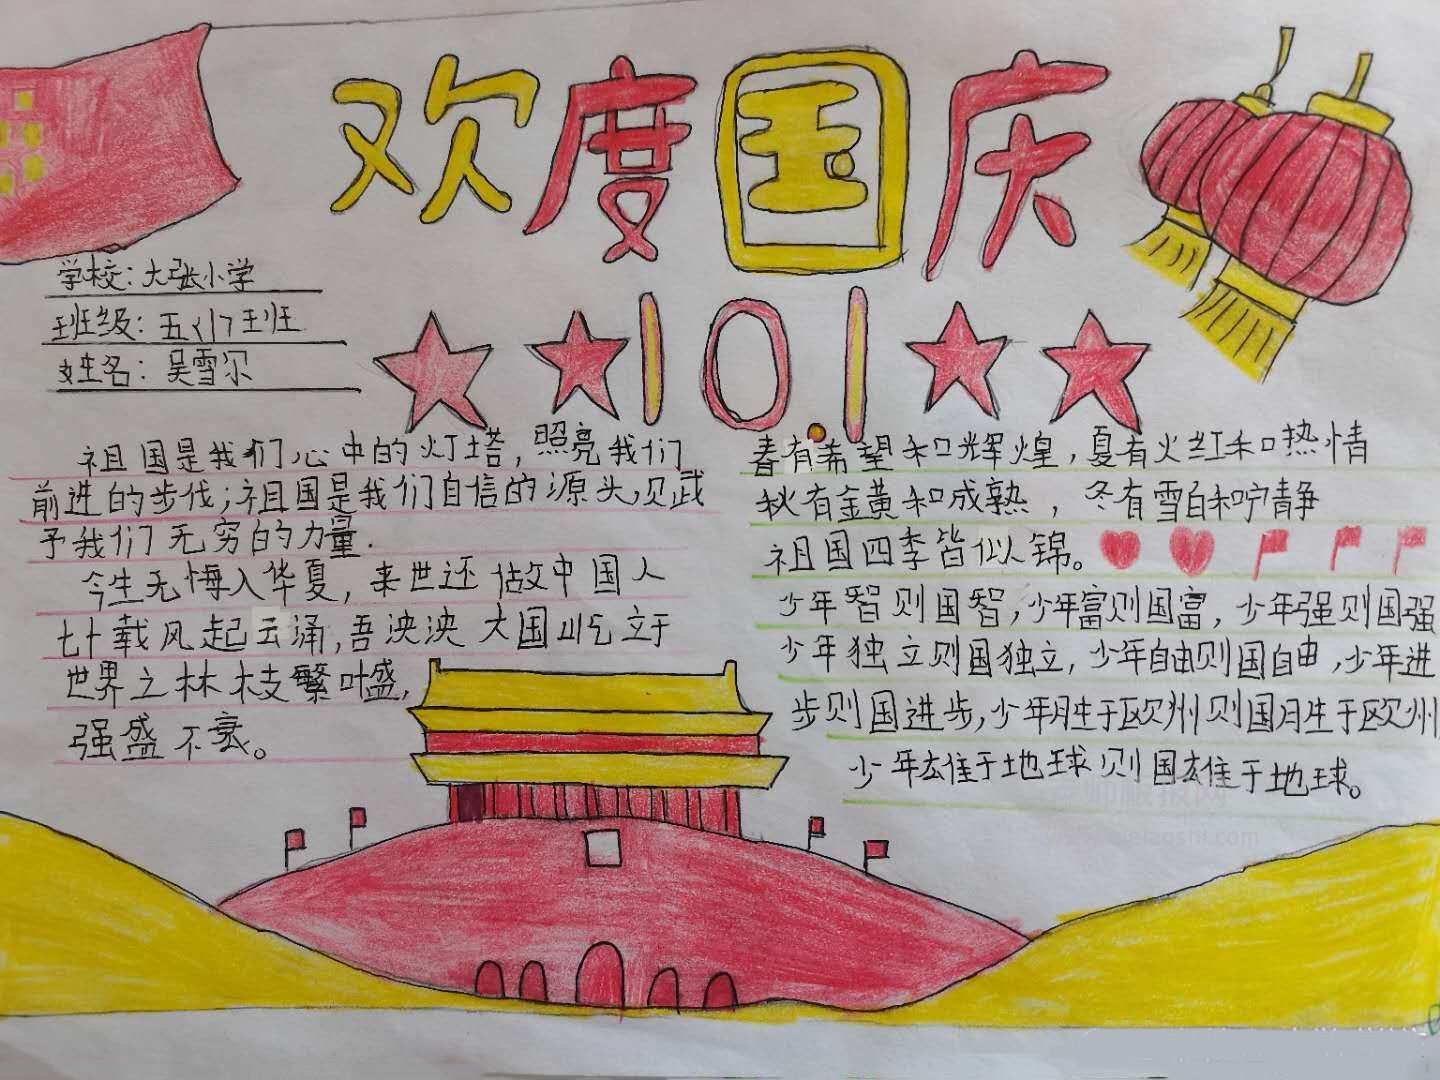 欢度国庆
10.1
学校：大张小学
班级：五<1>班
姓名：吴雪尔
祖国是我们心中的灯塔，照亮我们
前进的步伐；祖国是我们自信的源头，贝武
予我们无穷的力量.
今生无悔入华夏，来世还做中国人
七十载风起云涌，吾泱泱大国屹立于
世界之林枝繁叶盛，
强盛不衰。
春有希望和辉煌，夏有火红和热情
秋有金黄和成熟，冬有雪白和宁静
祖国四季皆似锦。
少年智则国智，少年富则国富，少年强则国强
少年独立则国独立，少年自由则国自由，少年进
步则国进步，少年胜于欧州则国胜于欧州
少年雄于地球则国雄于地球。
老师板报网